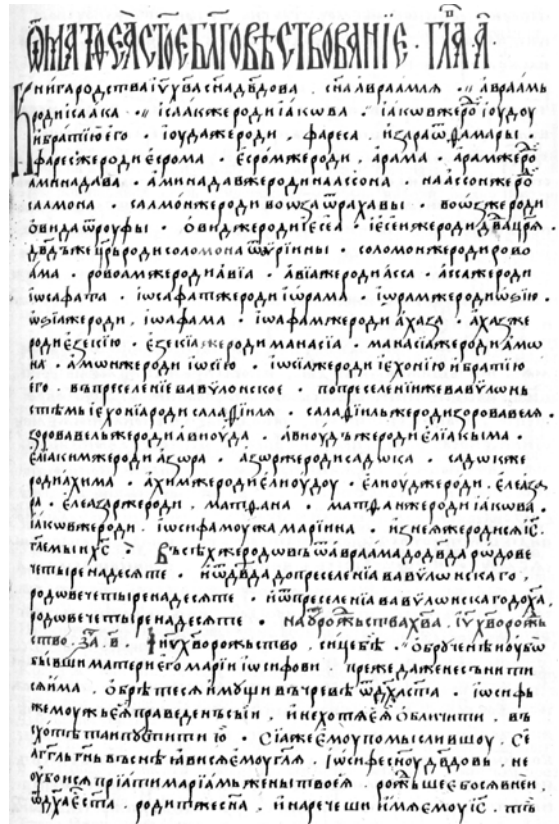 ѿ маѳеа ст҃ое бл҃говѣствованїе · гл҃а а҃ ·
Книгародства і҃ѵ х҃ва сн҃а дв҃дова · сн҃а авраамлѧ ·· авраамь
роди ісаака ·· ісаакже роди іакѡва · іакѡвже ро іоудоу
и братїю его · іоудаже роди , фареса , и зара ѿ ѳамары ·
фаресже роди есрома · есромже роди , арама · арамже ро
аминадава · аминадавже роди наассона · наассонже ро
салмона · салмонже роди вооза ѿ рахавы · воозже роди
ѡвида ѿ роуфы · овидже роди іесеа · іесеиже роди дв҃да цр҃ѧ
дв҃дъже цр҃ь роди соломона ѿ оурїины · соломонже роди рово
ама · ровоамже роди авїа · авїаже роди асса · ассаже роди
іѡсафата · іѡсафатже роди іѡрама · іѡрамже роди ѡзїю ·
ѡзїаже роди , іѡафама · іѡафамже роди ахаза · ахазже
роди езекїю · езекїаже роди манасїа · манасїаже роди амѡ
на · амѡнже роди іѡсїю · іѡсїаже роди іехонїю и братїю
его · въ преселенїе вавѵлонское · по преселенїиже вавѵлонь
стѣмь іехонїа роди салаѳїилѧ · салаѳїильже роди зоровавелѧ ·
зоровавельже роди авиоуда · авиоудъже роди елїакыма ·
елїакимже роди азѡра · азѡрже роди садѡка · садѡкже
роди ахима · ахимже роди елиоудоу · елиоудже роди , елеаза
ра · елеазарже роди , матѳана · матѳанже роди іакѡва ·
іакѡвже роди , іѡсифа моужа марїина · из неѧже родисѧ і҃с
гл҃емыи х҃с · Въсѣхже родѡвъ ѿ авраама до дв҃да рѡдове
четыренадесѧте · и ѿ дв҃да до преселенїа вавѵлѡнскаго ,
родѡве четыренадесѧте · и ѿ преселенїа вавѵлѡнскаго до х҃а ,
родѡве четыренадесѧте · на оурожьства х҃ва . і҃ѵ х҃во рожь
ство . за҃ . в҃ . І҃ѵ х҃во рожьство , сице бѣ · обрученѣ иоубѡ
бывши матери его марїи іѡсифови · прежедаже не сънити
сѧ има · обрѣтесѧ имущи въ чревѣ ѿ дх҃а ст҃а · іѡсифь
же моужь еѧ праведенъ сыи , и не хотѧ еѧ обличити , въ
схотѣ таи пустити ю · Сїаже емоу помыслившоу . се
агг҃лъ гн҃ь въ снѣ ꙗвисѧ емоу гл҃ѧ . іѡсифе сноу дв҃довь , не
оубоисѧ прїати марїамь жены твоеѧ . рожьшеебосѧ в неи ,
ѿ дх҃а е ст҃а . родитже сн҃а , и наречеши имѧ емоу і҃с · тъ